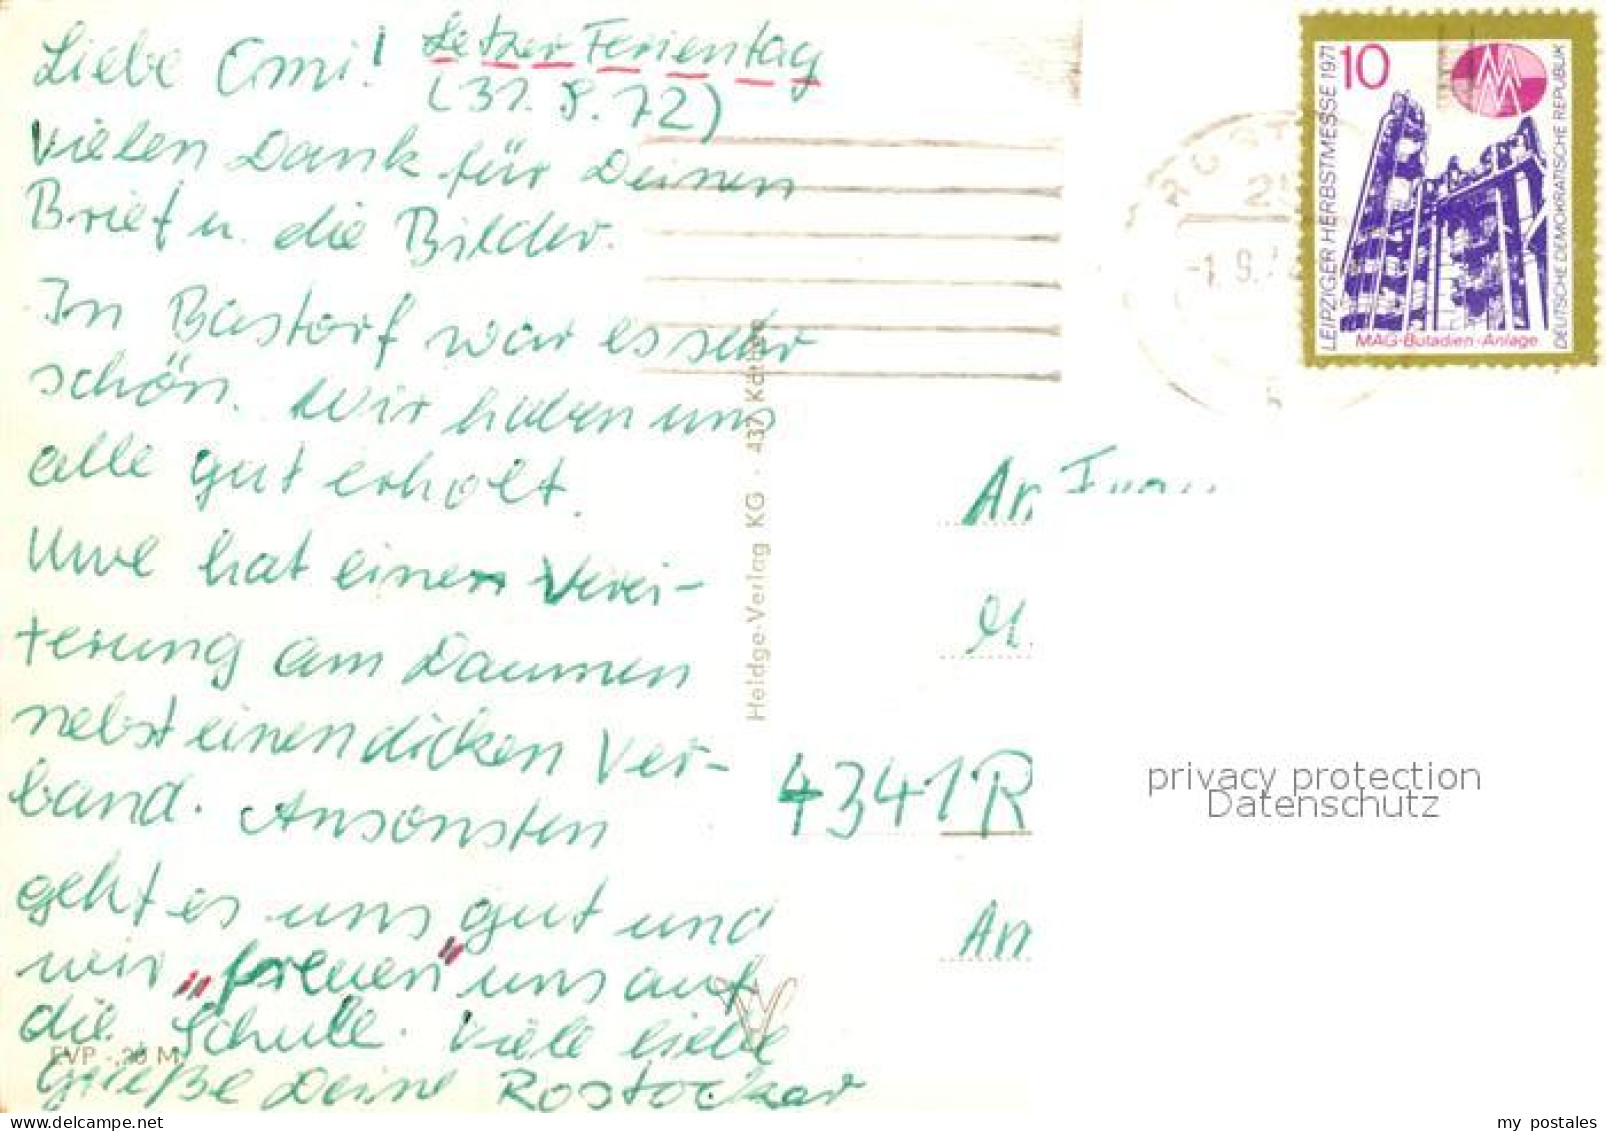 Liebe Omi! Letzer Ferientag
(31.8.72)
Vielen Dank für Deinen
Brief u. die Bilder.
In Bastorf war es sehr
schön. Wir haben uns
alle gut erholt.
Uwe hat einen Verei-
terung am Daumen
nebst einen dicken Ver-
band. Ansonsten
geht es uns gut und
wir „freuen" uns auf
die Schule. Viele liebe
Grüße Deine Rostocker
EVP -,20 M
Heldge-Verlag KG · 437 Köthen
ROST
25
-1.9.7
LEIPZIGER HERBSTMESSE 1971
10
MM
DEUTSCHE DEMOKRATISCHE REPUBLIK
MAG-Butadien-Anlage
An Frau
4341 R
An
privacy protection
Datenschutz
my postales